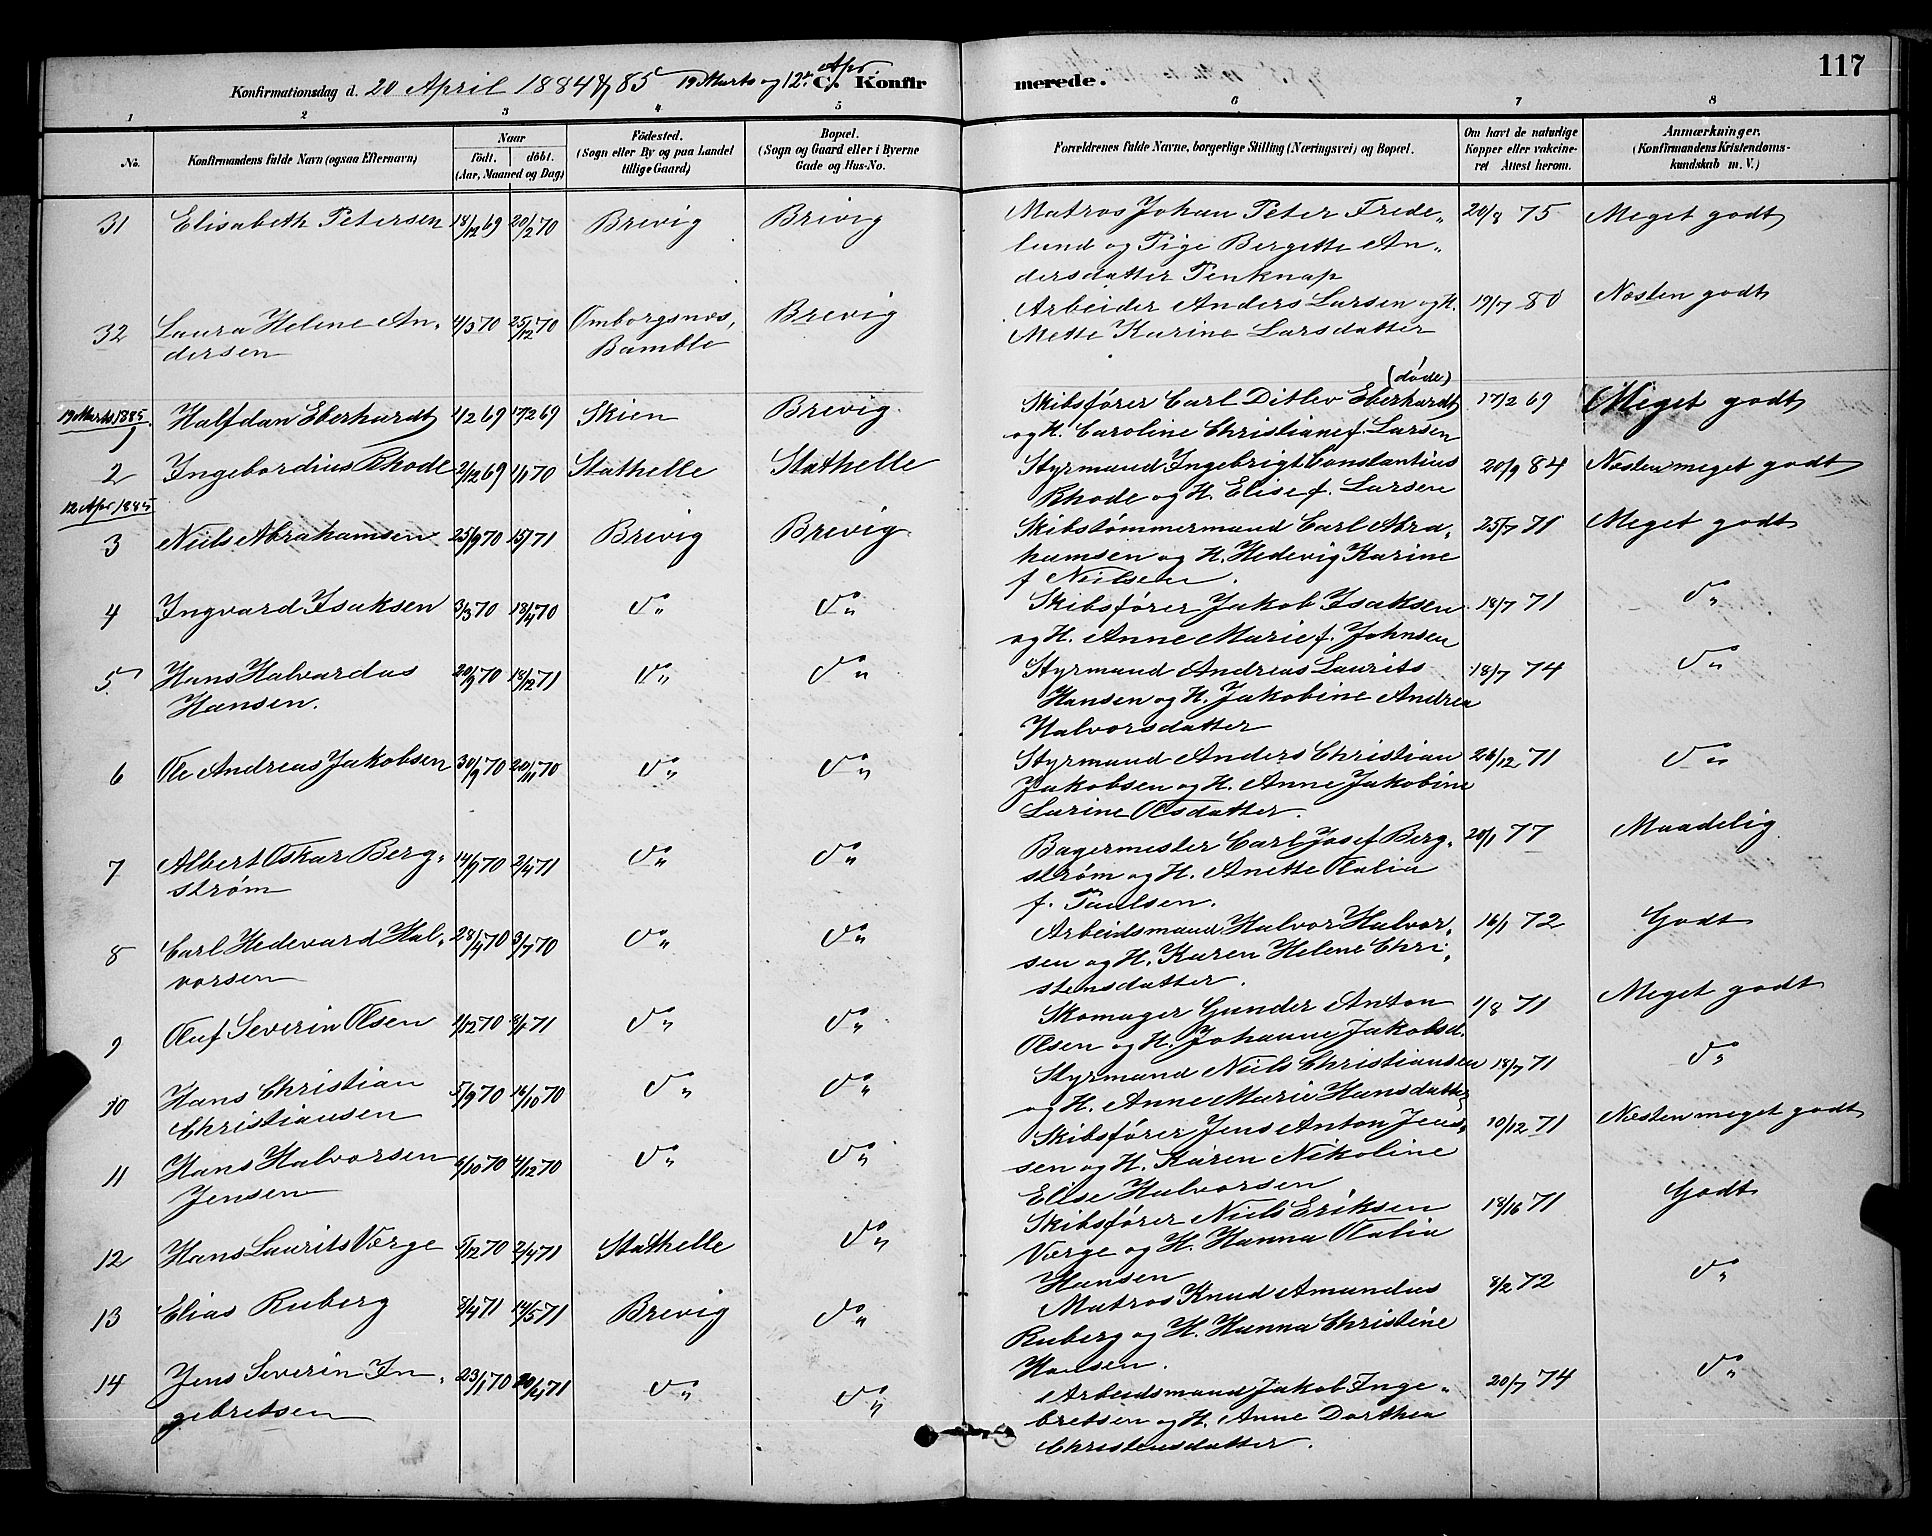 117
Konfirmationsdag d. 20 April 1884 & 85 19 Marts og 12te Apr. C. Konfirmerede.
1 2 3 4 5 6 7 8
No. Konfirmandens fulde Navn (ogsaa Efternavn) Naar födt. döbt. (Aar, Maaned og Dag) Födested. (Sogn eller By og paa Landet tillige Gaard) Bopæl. (Sogn og Gaard eller i Byerne Gade og Hus-No. Forældrenes fulde Navne, borgerlige Stilling (Næringsvei) og Bopæl. Om havt de naturlige Kopper eller vakcineret Attest herom. Anmærkninger. (Konfirmandens Kristendomskundskab m. V.)
31 Elisabeth Petersen 18/12 69 20/2 70 Brevig Brevig Matros Johan Peter Fredelund og Pige Bergette Andersdatter Penknap 20/8 75 Meget godt
32 Laura Helene Andersen 4/3 70 25/12 70 Omborgsnæs, Bamble Brevig Arbeider Anders Larsen og H. Mette Karine Larsdatter 19/7 80 Næsten godt
19 Marts 1885.
1 Halfdan Eberhardt 1/2 69 17/2 69 Skien Brevig Skibsfører Carl Ditlev Eberhardt (døde) og H. Caroline Christiane f. Larsen 17/2 69 Meget godt
2 Ingebordius Rhode 2/12 69 1/1 70 Stathelle Stathelle Styrmand Ingebrigt Constantius Rhode og H. Elise f. Larsen 20/9 84 Næsten meget godt
12 Apr. 1885
3 Niels Abrahamsen 25/9 70 15/1 71 Brevig Brevig Skibstømmermand Carl Abrahamsen og H. Hedevig Karine f Neilsen. 25/7 71 Meget godt
4 Ingvard Isaksen 3/3 70 18/4 70 do do Skibsfører Jakob Isaksen og H. Anne Marie f. Johnsen 18/7 71 do
5 Hans Halvardus Hansen. 20/9 70 18/12 71 do do Styrmand Andreas Laurits Hansen og H. Jakobine Andrea Halvorsdatter 18/7 74 do
6 Ole Andreas Jakobsen 30/9 70 20/11 70 do do Styrmand Anders Christian Jakobsen og H. Anne Jakobine Larine Olsdatter. 26/12 71 do
7 Albert Oskar Bergstrøm 14/9 70 2/4 71 do do Bagermester Carl Josef Bergstrøm og H. Anette Otalia f. Paulsen. 20/1 77 Maadelig
8 Carl Hedevard Halvorsen 28/4 70 3/7 70 do do Arbeidsmand Halvor Halvorsen og H. Karen Helene Christensdatter. 16/1 72 Godt
9 Oluf Severin Olsen 1/12 70 8/1 71 do do Skomager Gunder Anton Olsen og H. Johanne Jakobsd. 1/8 71 Meget godt
10 Hans Christian Christiansen 5/9 70 16/10 70 do do Styrmand Niels Christiansen og H. Anne Marie Hansdatter 18/7 71 do
11 Hans Halvorsen Jensen 6/10 70 4/12 70 do do Skibsfører Jens Anton Jensen og H. Karen Nikoline Elise Halvorsen 10/12 71 Næsten meget godt
12 Hans Laurits Værge 5/12 70 2/4 71 Stathelle do Skibsfører Niels Eriksen Værge og H. Hanna Otalia Hansen 18/16 71 Godt
13 Elias Ruberg 8/4 71 14/5 71 Brevig do Matros Knud Amandus Ruberg og H. Hanna Christine Hansen. 8/2 72 do
14 Jens Severin Ingebretsen 23/1 70 71 do do Arbeidsmand Jakob Ingebretsen og H. Anne Dorthea Christensdatter. 20/7 74 do